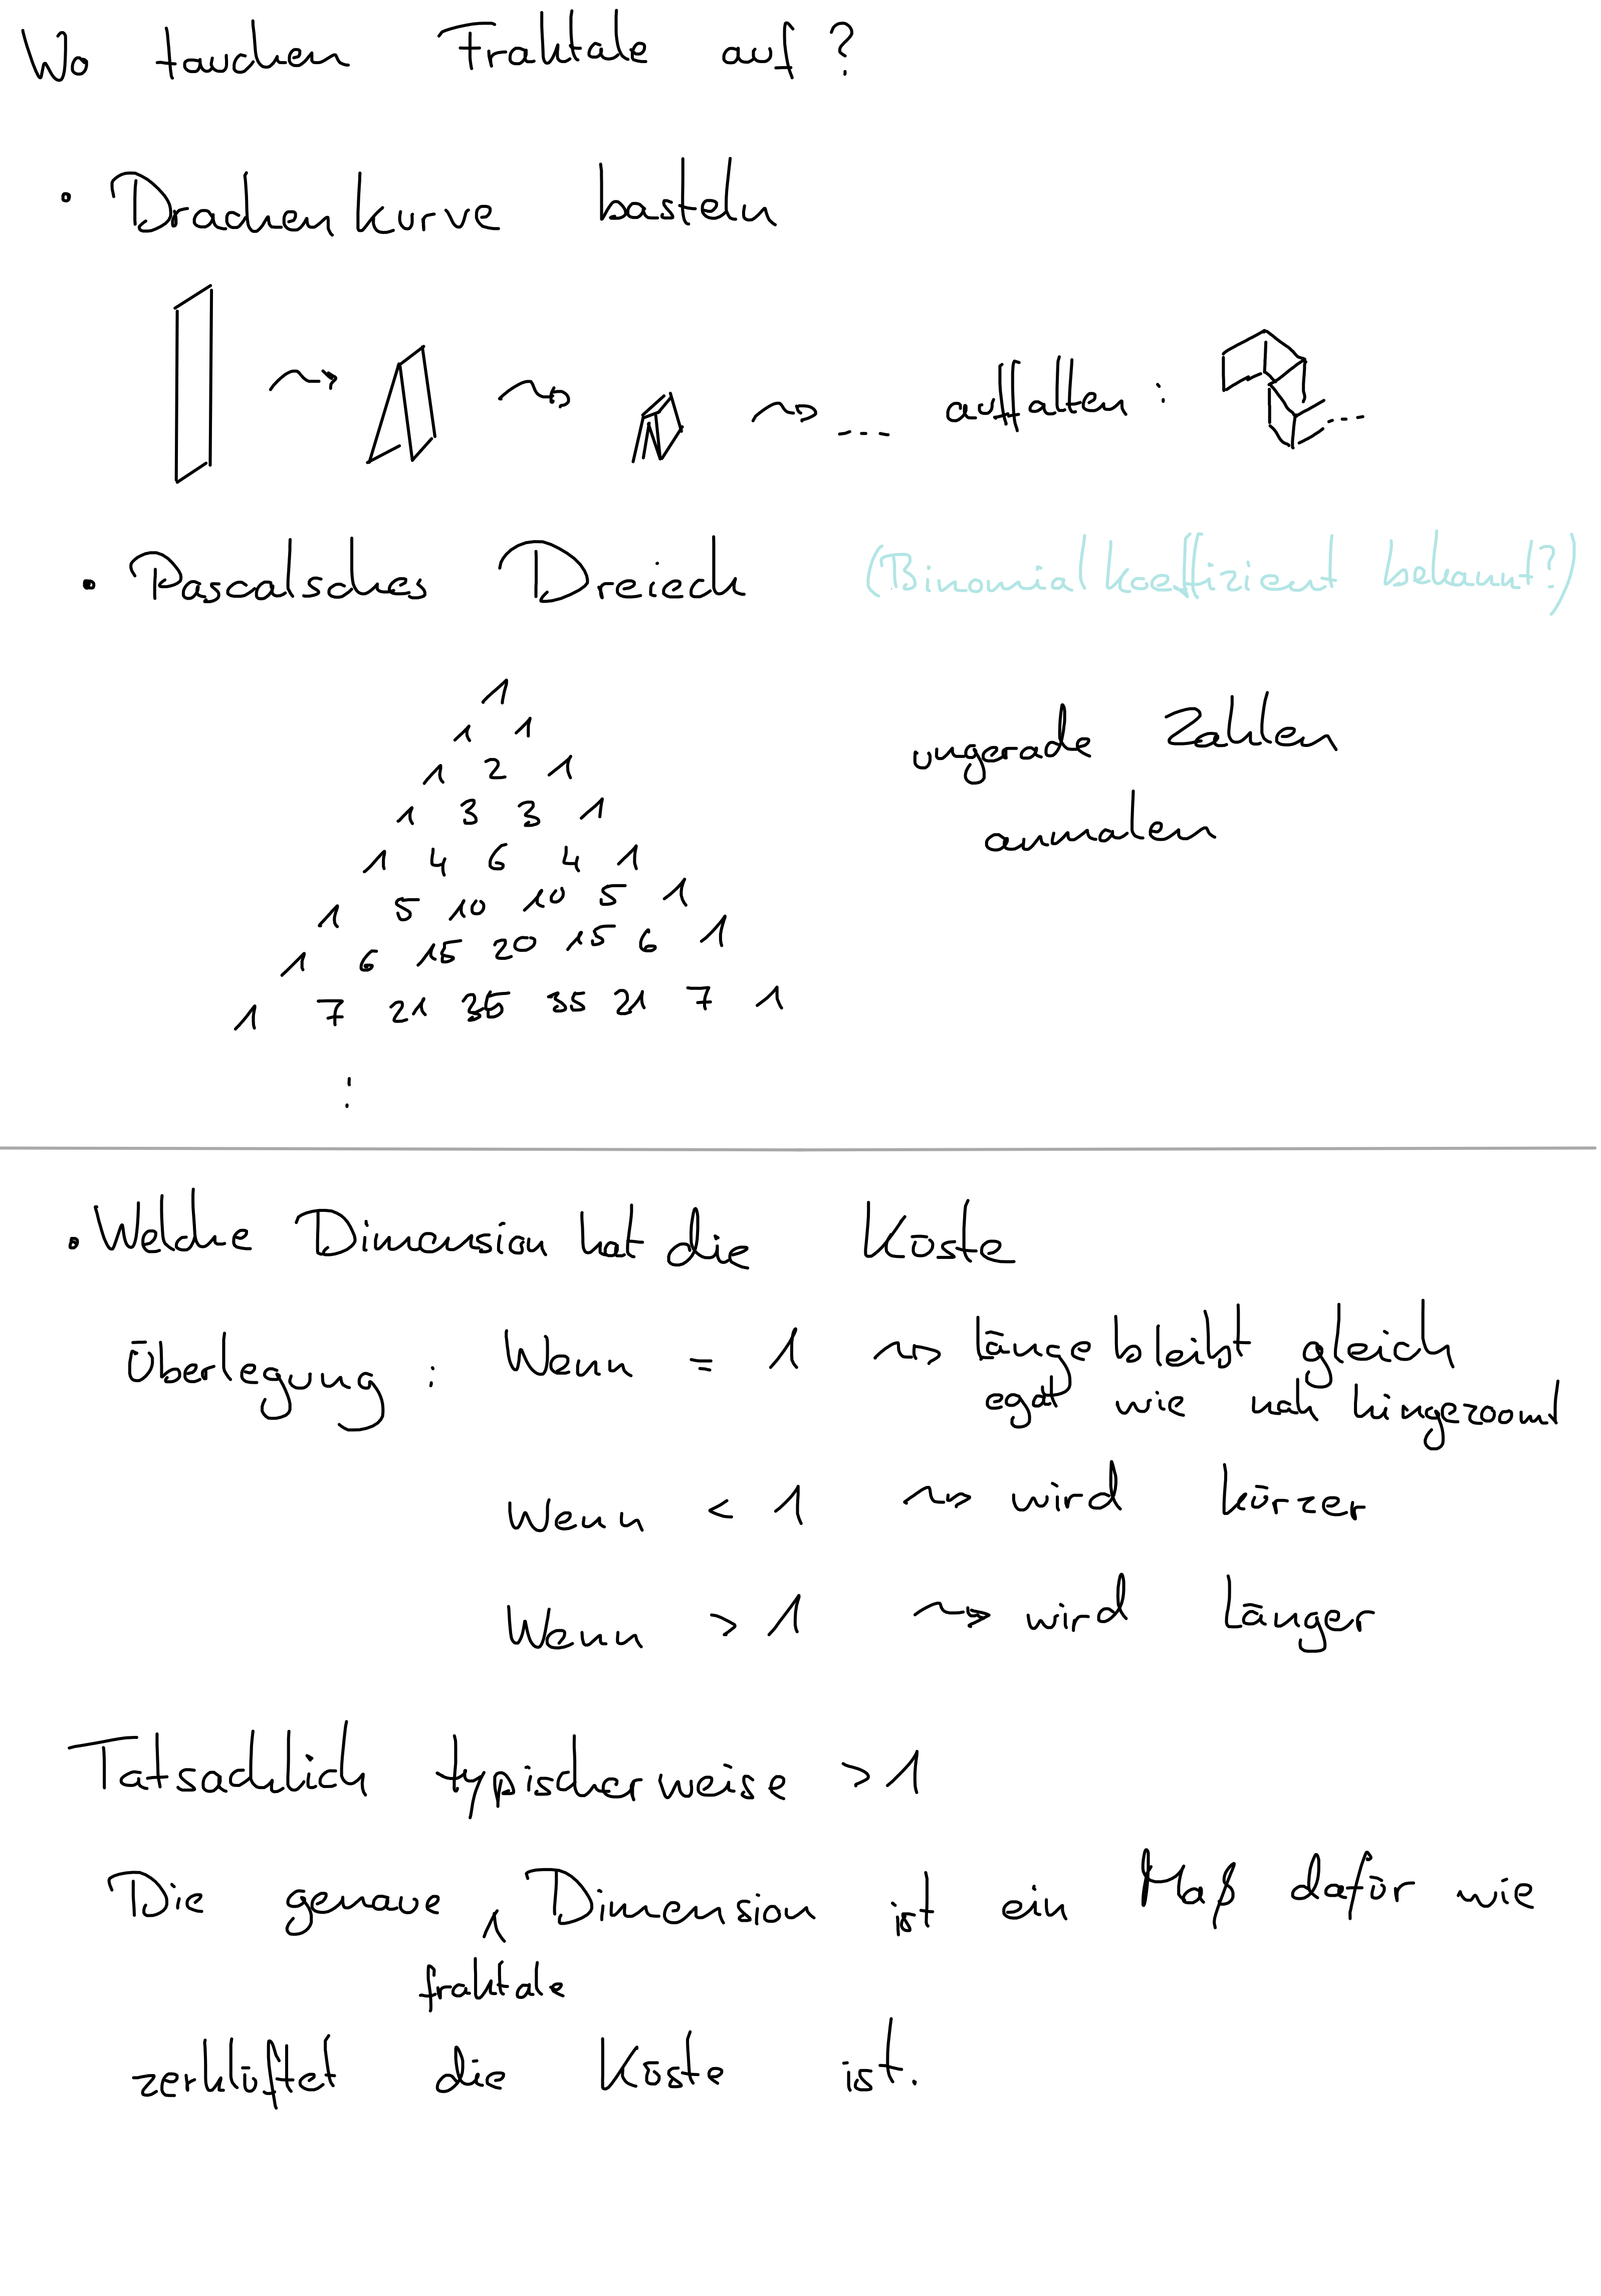 Wo tauchen Fraktale auf?
• Drachenkurve basteln
⇝ ⇝ ⇝ ... auffalten : ...
• Pascalsches Dreieck (Binomialkoeffizient bekannt?)
1
1 1
1 2 1
1 3 3 1
1 4 6 4 1
1 5 10 10 5 1
1 6 15 20 15 6 1
1 7 21 35 35 21 7 1
:
ungerade Zahlen
anmalen
• Welche Dimension hat die Küste
Überlegung : Wenn = 1 ⇝ Länge bleibt gleich
egal wie nah hingezoomt
Wenn < 1 ⇝ wird kürzer
Wenn > 1 ⇝ wird länger
Tatsächlich typischerweise > 1
Die genaue fraktale Dimension ist ein Maß dafür wie
zerklüftet die Küste ist.